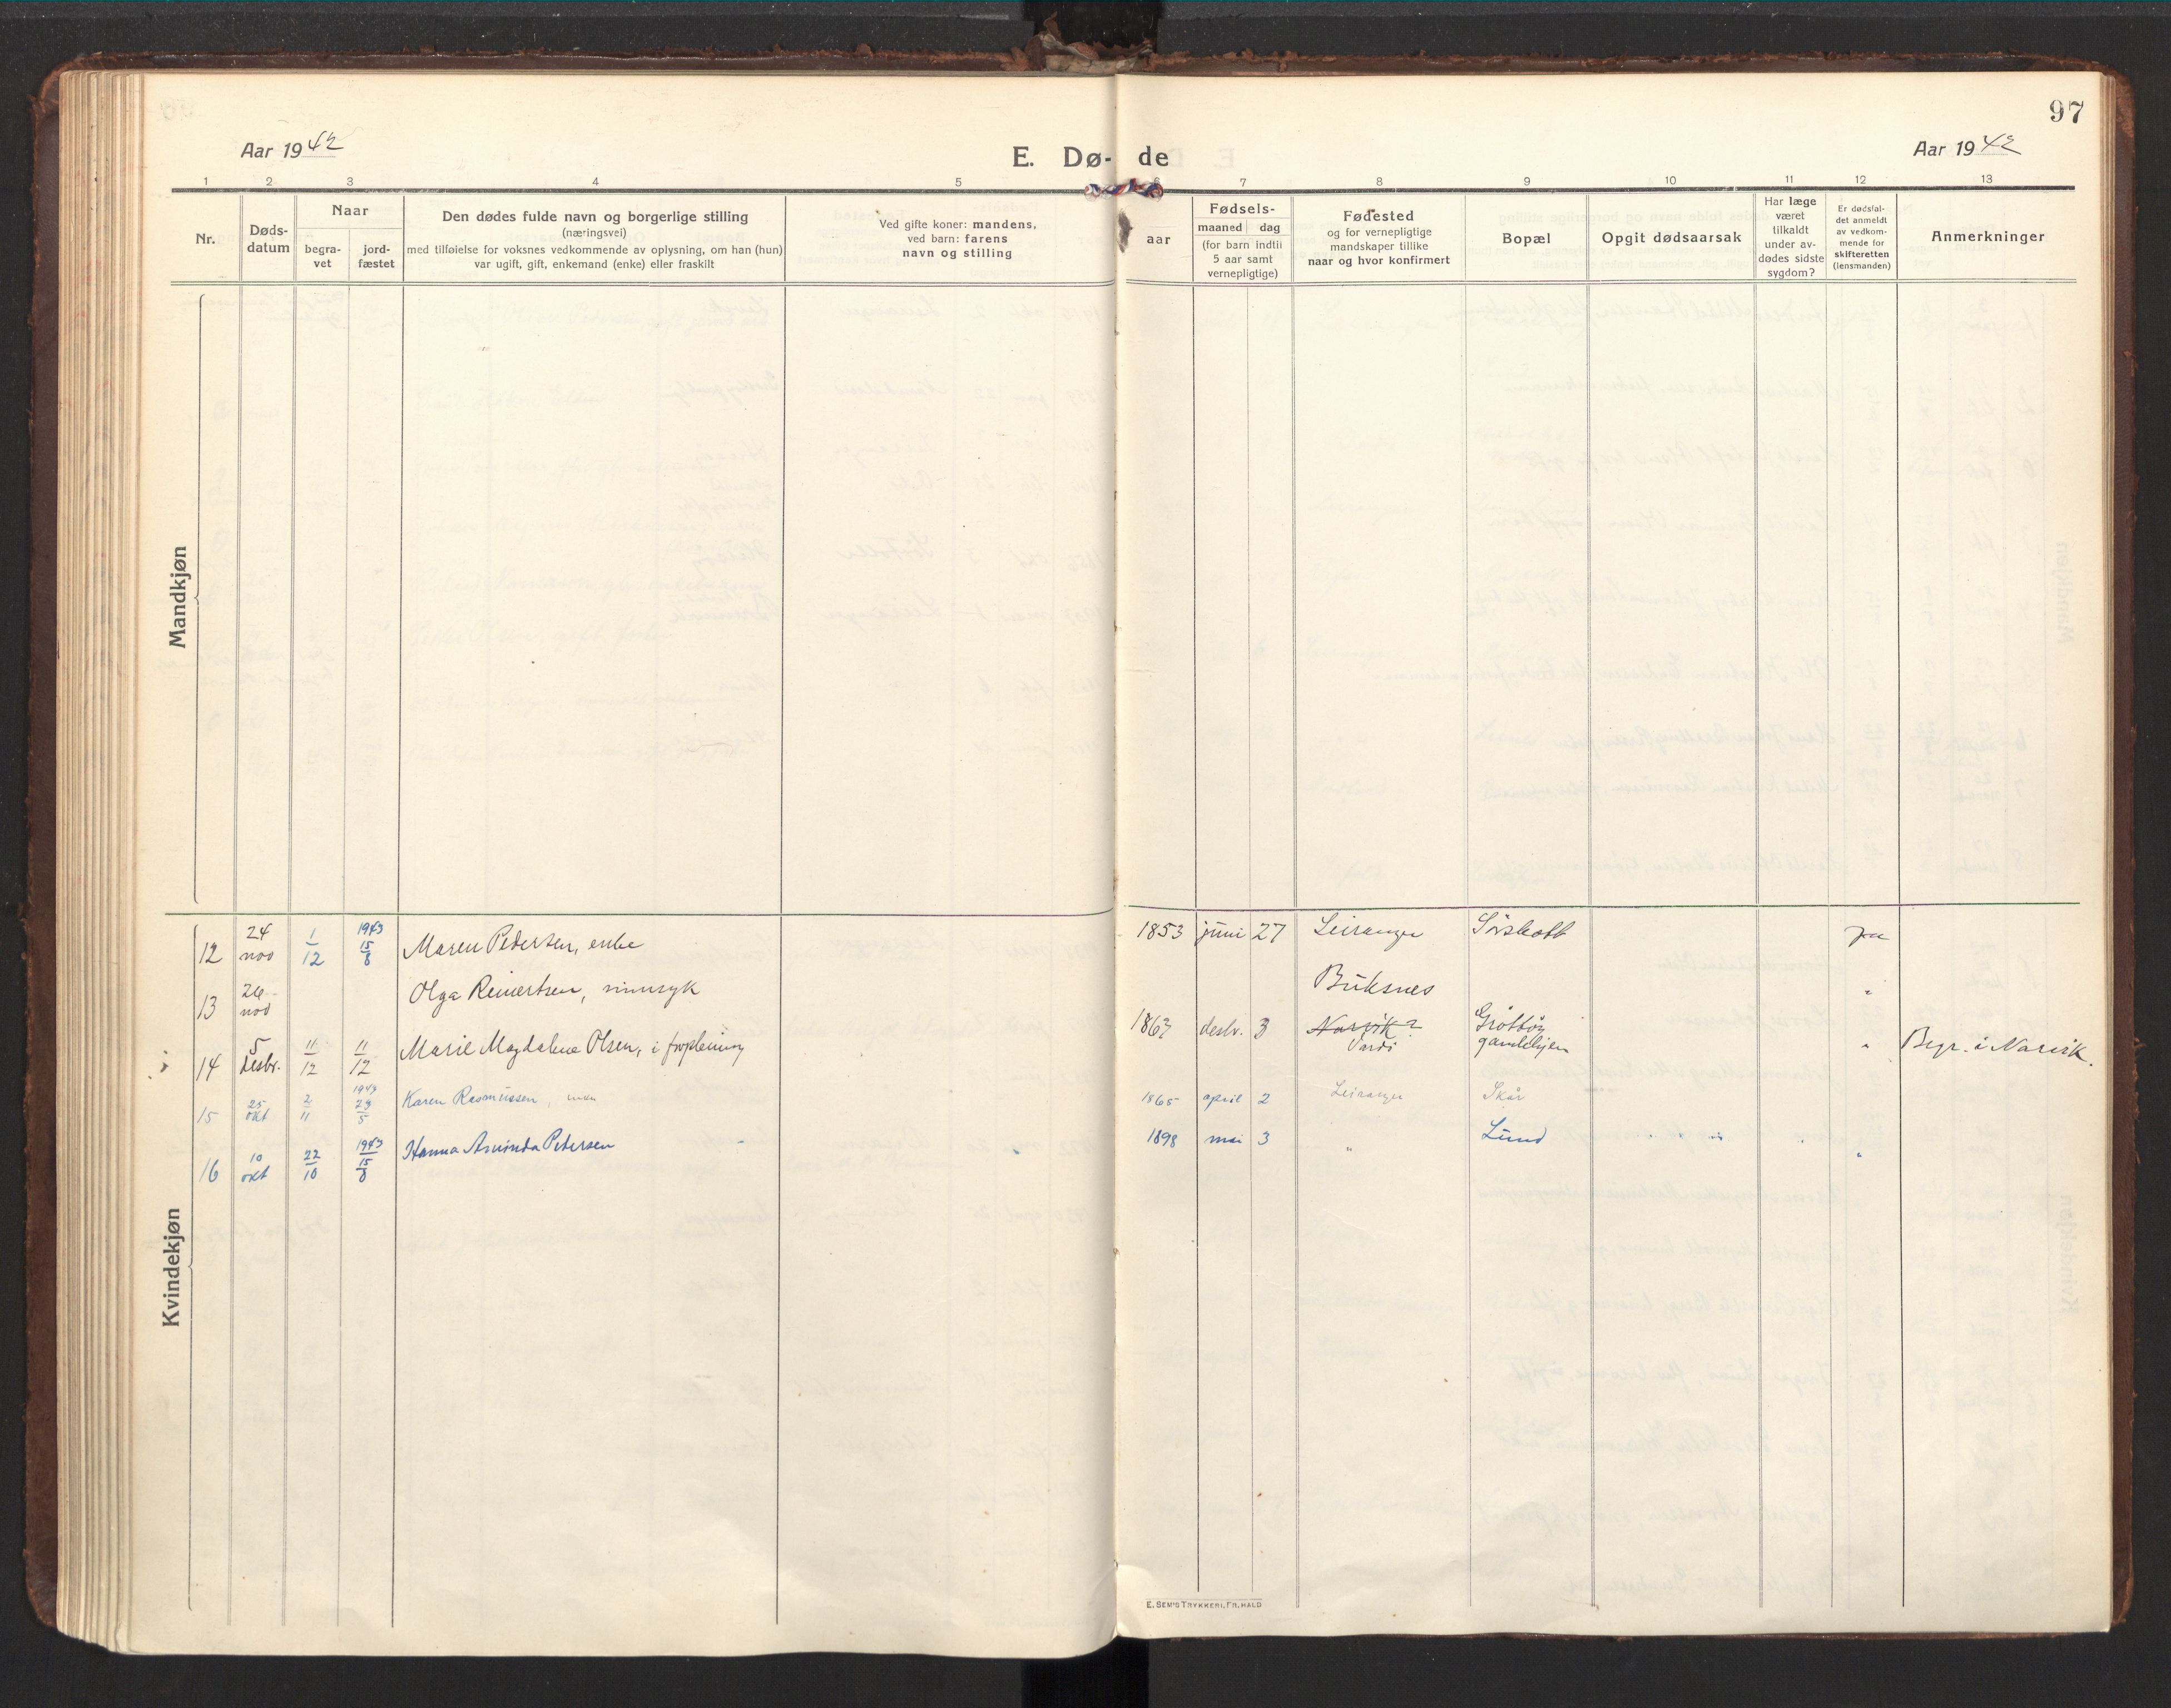 97
Aar 1942
E. Dø- de
Aar 1942
1 2 3 4 5 6 7 8 9 10 11 12 13
Nr.
Døds-
datum
Naar
begra-
vet
jord-
fæstet
Den dødes fulde navn og borgerlige stilling
(næringsvei)
med tilføielse for voksnes vedkommende av oplysning, om han (hun)
var ugift, gift, enkemand (enke) eller fraskilt
Ved gifte koner: mandens,
ved barn: farens
navn og stilling
aar
Fødsels-
maaned dag
(for barn indtil
5 aar samt
vernepligtige)
Fødested
og for vernepligtige
mandskaper tillike
naar og hvor konfirmert
Bopæl
Opgit dødsaarsak
Har læge
været
tilkaldt
under av-
dødes sidste
sygdom?
Er dødsfal-
det anmeldt
av vedkom-
mende for
skifteretten
(lensmanden)
Anmerkninger
Mandkjøn
Kvindekjøn
12 24 nov 1/12 1943 15/8 Maren Pedersen, enke 1853 juni 27 Leiranger Sørskott ja
13 26 nov Olga Reinertsen, sinnsyk Buksnes "
14 5 desbr. 11/12 11/12 Marie Magdalene Olsen, i forpleining 1863 desbr. 3 Narvik? Vardö Grøtøy gamlehjem " Begr. i Narvik.
15 25 okt 2/11 1943 23/5 Karen Rasmussen, enke 1865 april 2 Leiranger Skår
16 10 okt 22/10 1943 15/8 Hanna Aminda Petersen 1898 mai 3 " Lund "
E. SEM'S TRYKKERI, FR.HALD